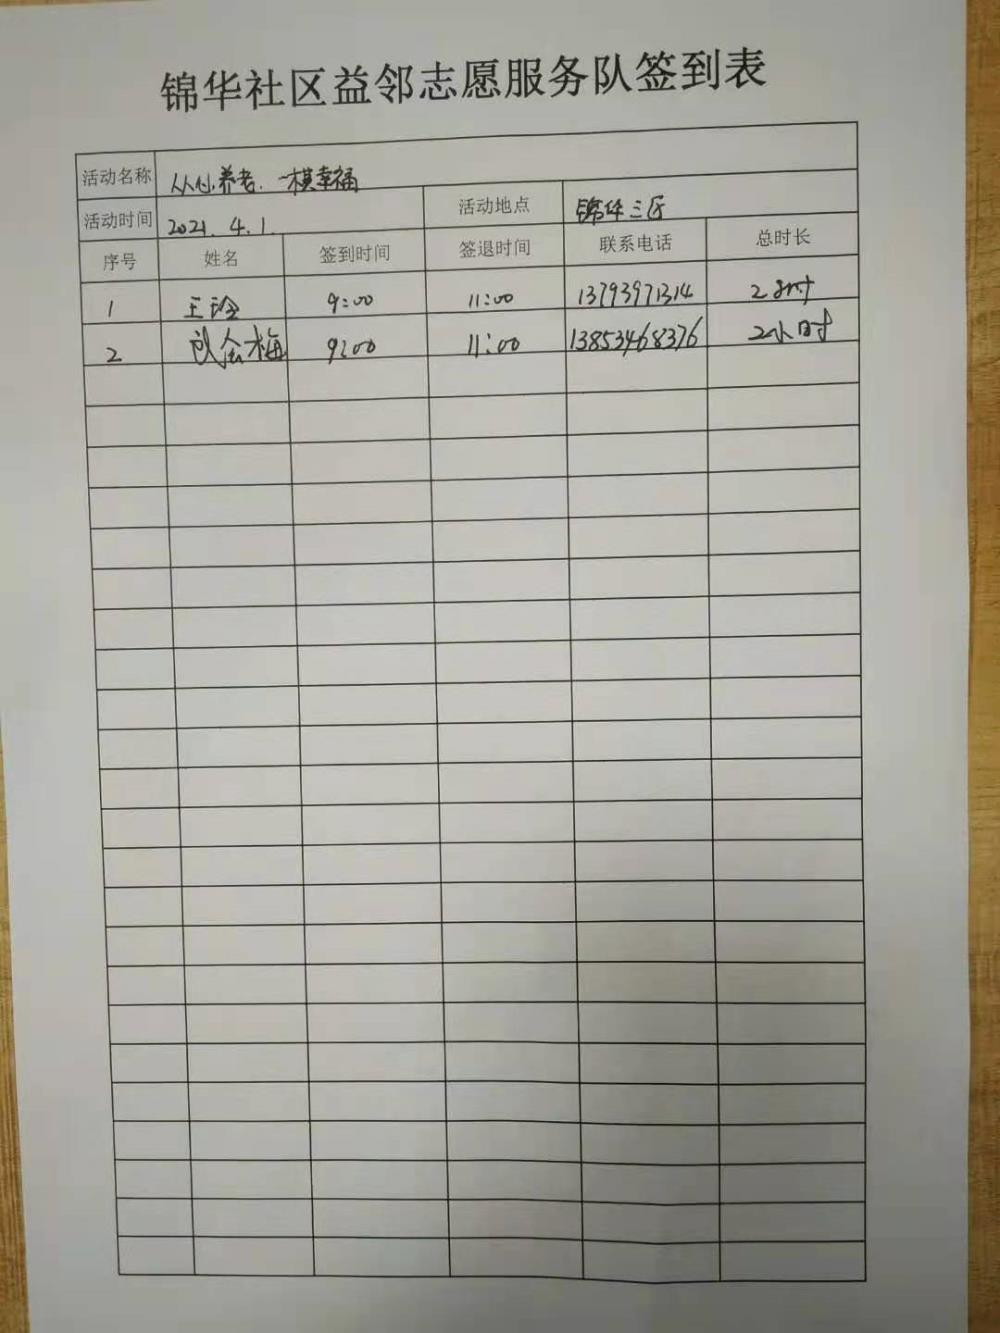 锦华社区益邻志愿服务队签到表
活动名称 从心养老、一棋幸福
活动时间 2021. 4. 1. 活动地点 锦华三区
序号 姓名 签到时间 签退时间 联系电话 总时长
1 王玲 9:00 11:00 13793971314 2小时
2 会梅 9:00 11:00 13853468376 2小时